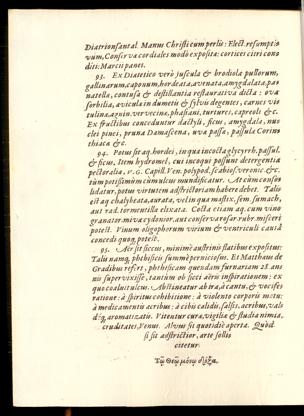 Diatrionsantal. Manus Christi cum perlis: Elect. resumptiuum, Conseruæ cordiales modò exposita: cortices citri conditi: Marcii panes.
93. Ex Diætetico verò juscula & brodiola pullorum, gallinarum, caponum, hordeata, avenata, amygdalata, panatella, contusa & destillantia restaurativa dicta: ova sorbilia, avicula in dumetis & sylvis degentes, carnes vituline, agnin. vervecine, phasiani, turtures, capreoli &c. Ex fructibus concedentur dactyli, ficus, amygdala, nuclei pinei, pruna Damascena, uva passa, passula Corinthiaca &c.
94. Potus sit aq. hordei, in qua incocta glycyrrh. passul. & ficus, Item hydromel, cui incoqui possunt detergentia pectoralia, v.G. Capill. Ven. polypod. scabios. veronic. &c. tum potissimùm cùm ulcus mundificatur. At cùm consolidatur, potus virtutem adstrictoriam habere debet. Talis est aq. chalybeata, aurata, vel in qua mastix, sem. sumach, aut rad. tormentilla elixata. Cocta etiam aq. cum vino granator. mivæ cydonior. aut conserva rosar. rubr. misceri potest. Vinum oligophorum virium & ventriculi causâ concedi quoq. potest.
95. Aër sit siccus, minimè austrinis flatibus expositus: Talis namq, phthisicis summè perniciosus. Et Matthæus de Gradibus refert, phthisicum quendam furnarium 25. annis supervixisse, tantùm ob sicci aëris inspirationem: ex quo coaluit ulcus. Abstineat ab ira, à cantu, & vociferatione: à spiritus cohibitione: à violento corporis motu: à medicamentis acribus: à cibis calidis, salsis, acribus, valdéq, aromatizatis. Vitentur cura, vigiliæ & studia nimia, cruditates, Venus. Alvus sit quotidie aperta. Quòd
si sit adstrictior, arte sollicitetur.
Τῷ Θεῷ μόνῳ δόξα.